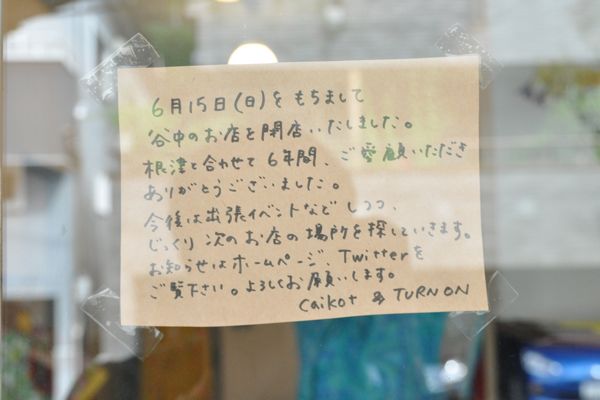 6月15日(日)をもちまして
谷中のお店を閉店いたしました。
根津と合わせて6年間、ご愛顧いただき
ありがとうございました。
今後は出張イベントなどしつつ、
じっくり次のお店の場所を探していきます。
お知らせはホームページ、Twitterを
ご覧下さい。よろしくお願いします。
Caikot & TURN ON